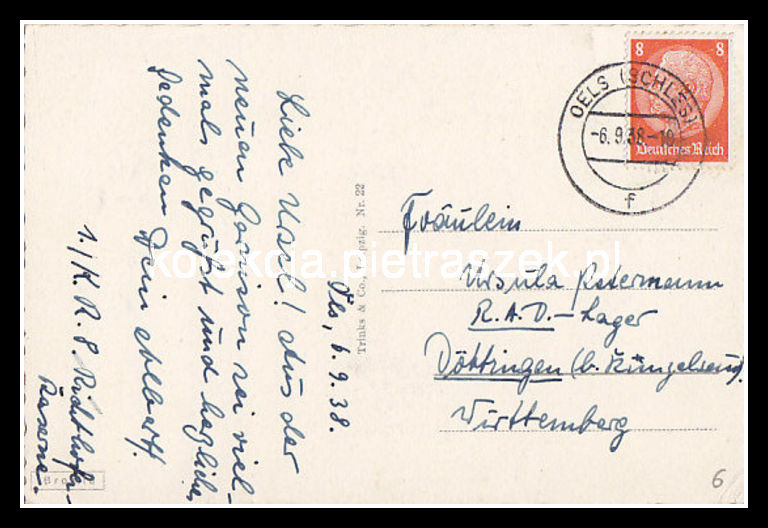 Öls, 6.9.38.
Liebe Ursel! Aus der
neuen Garnison sei viel-
mals gegrüßt und herzlichen
Gedenken Dein Albert.
1./K.R. 8. Richthofen-
Kaserne.
Trinks & Co., Leipzig. Nr. 22
8 8
Deutsches Reich
OELS (SCHLES)
-6.9.38.-18
f
Fräulein
Ursula Petermann
R.A.D.-Lager
Döttingen (b. Künzelsau).
Württemberg
kolekcja.pietraszek.pl
6